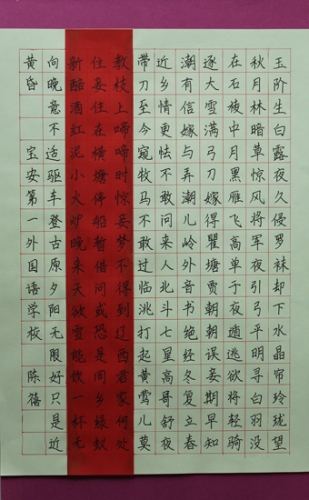 玉阶生白露夜久侵罗袜却下水晶帘玲珑望
秋月林暗草惊风将军夜引弓平明寻白羽没
在石棱中月黑雁飞高单于夜遁逃欲将轻骑
逐大雪满弓刀嫁得瞿塘贾朝朝误妾期早知
潮有信嫁与弄潮儿岭外音书绝经冬复立春
近乡情更怯不敢问来人北斗七星高哥舒夜
带刀至今窥牧马不敢过临洮打起黄莺儿莫
教枝上啼啼时惊妾梦不得到辽西君家何处
住妾住在横塘停船暂借问或恐是同乡绿蚁
新醅酒红泥小火炉晚来天欲雪能饮一杯无
向晚意不适驱车登古原夕阳无限好只是近
黄昏 宝安第一外国语学校 陈